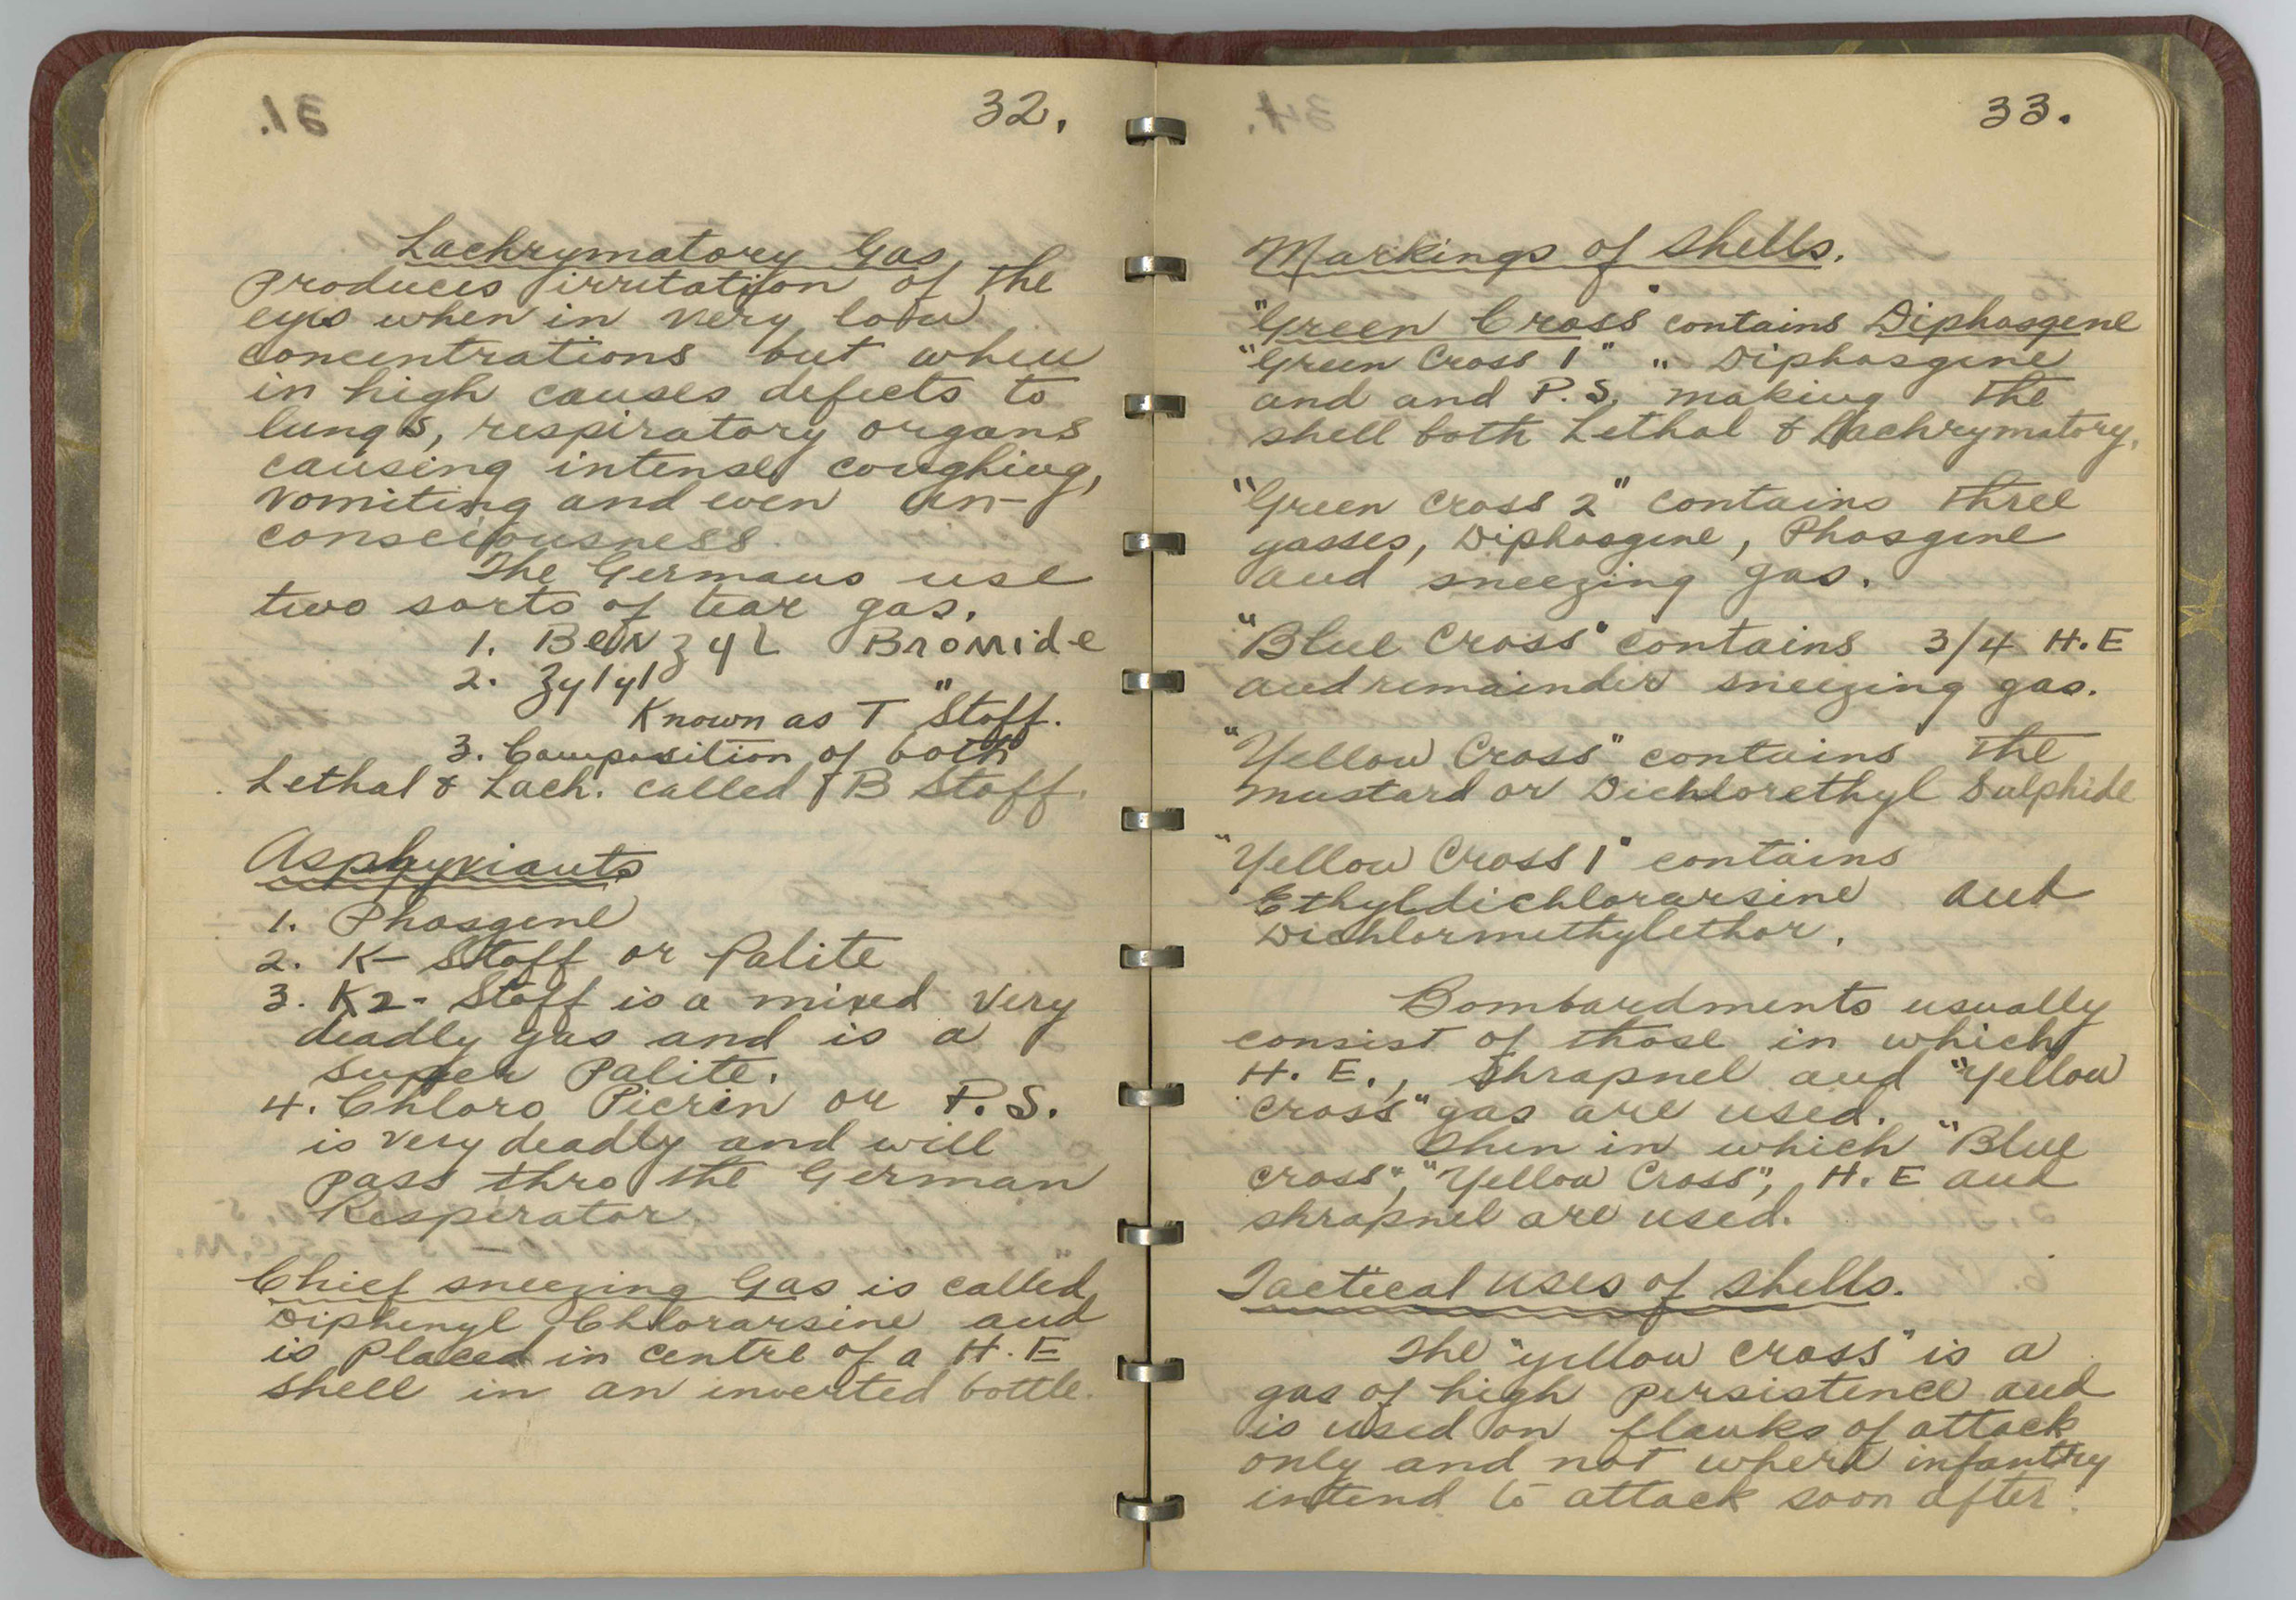 32.
Lachrymatory Gas
produces irritation of the
eyes when in very low
concentrations but when
in high causes defects to
lungs, respiratory organs
causing intense coughing,
vomiting and even un-
consciousness.
The Germans use
two sorts of tear gas.
1. Benzyl Bromide
2. Zylyl "
Known as T Stoff.
3. Composition of both
Lethal & Lach. called B Stoff.
Asphyxiants
1. Phosgene
2. K- Stoff or Palite
3. K2- Stoff is a mixed very
deadly gas and is a
super Palite.
4. Chloro Picrin or P.S.
is very deadly and will
pass thro the German
Respirator.
Chief sneezing Gas is called
Diphenyl Chlorarsine and
is placed in centre of a H.E
shell in an inverted bottle.
33.
Markings of shells.
"Green Cross" contains Diphosgene
"Green Cross 1" " Diphosgene
and and P.S. making the
shell both Lethal & Lachrymatory.
"Green Cross 2" contains three
gasses, Diphosgene, Phosgene
and sneezing gas.
"Blue Cross" contains 3/4 H.E
and remainder sneezing gas.
"Yellow Cross" contains the
mustard or Dichlorethyl Sulphide
"Yellow Cross 1" contains
Ethyldichlorarsine and
Dichlormethylethor.
Bombardments usually
consist of those in which
H. E., Shrapnel and "Yellow
Cross" gas are used.
Then in which "Blue
Cross", "Yellow Cross", H.E and
shrapnel are used.
Tactical uses of shells.
The "yellow cross" is a
gas of high persistence and
is used on flanks of attack
only and not where infantry
intend to attack soon after.